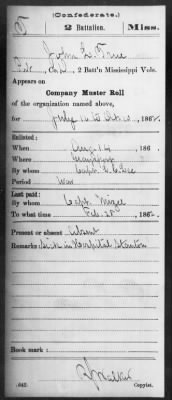 (Confederate.)
T 2 Battalion. Miss.
John L. True
Co. 2 Batt'n Mississippi Vols.
Appears on
Company Muster Roll
of the organization named above,
for July to Oct 186
Enlisted:
When Aug 14 186
Where
By whom Capt.
Period War
Last paid:
By whom Capt. Mizee
To what time Feb. 28 186
Present or absent Absent
Remarks: Sick in Hospital Staunton
Book mark:
(642) Walker
Copyist.